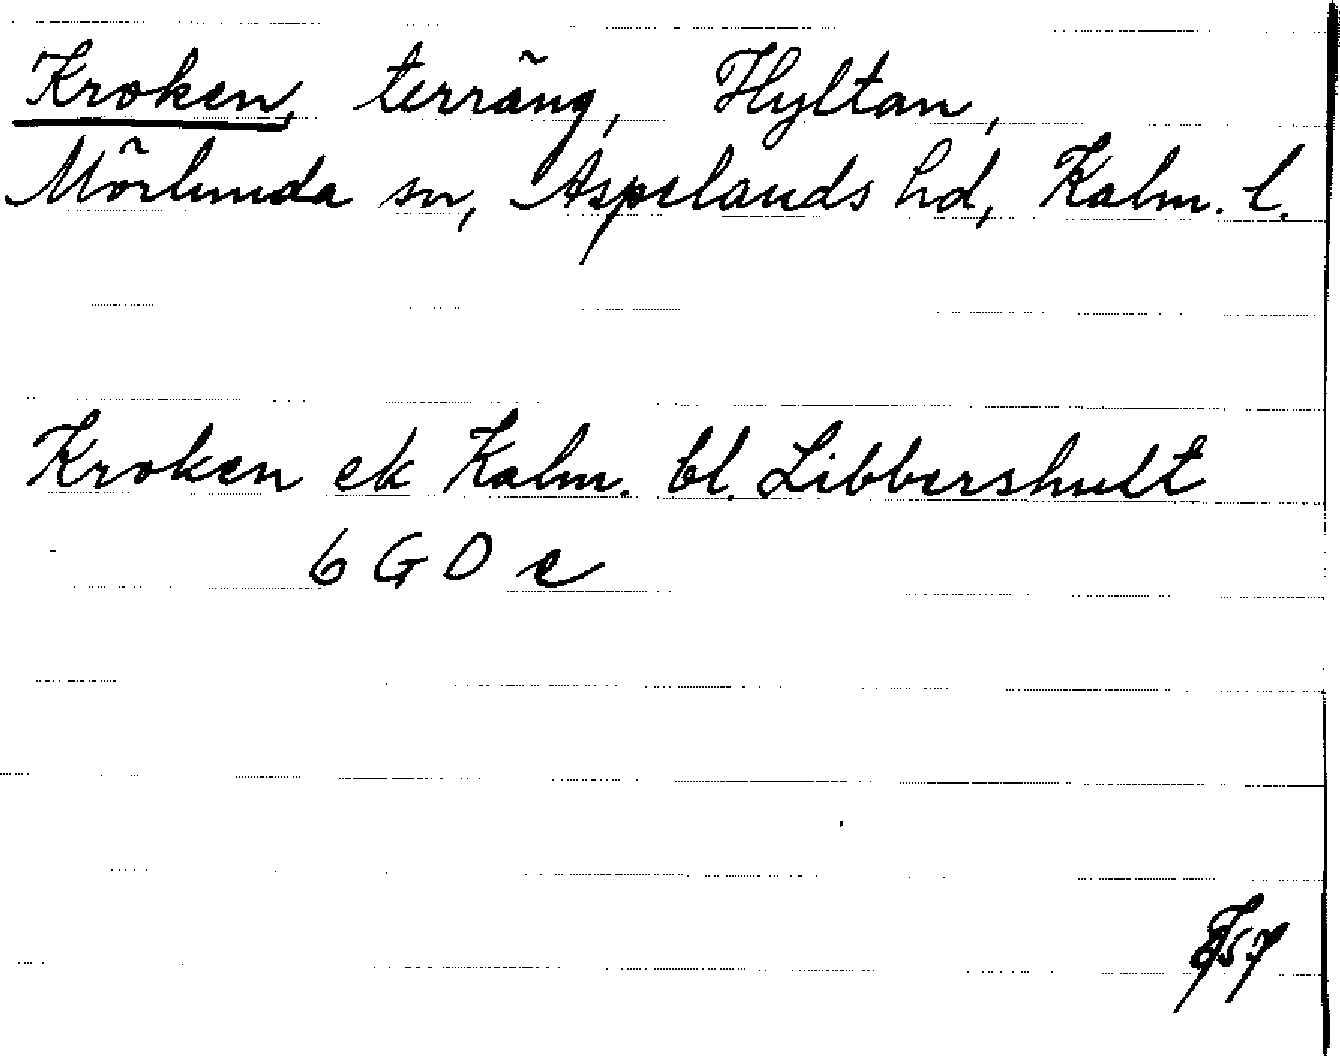 Kroken, terräng, Hyltan,
Mörlunda sn, Aspelands hd, Kalm. l.
Kroken ek Kalm. bl. Libbershult
6 G D c